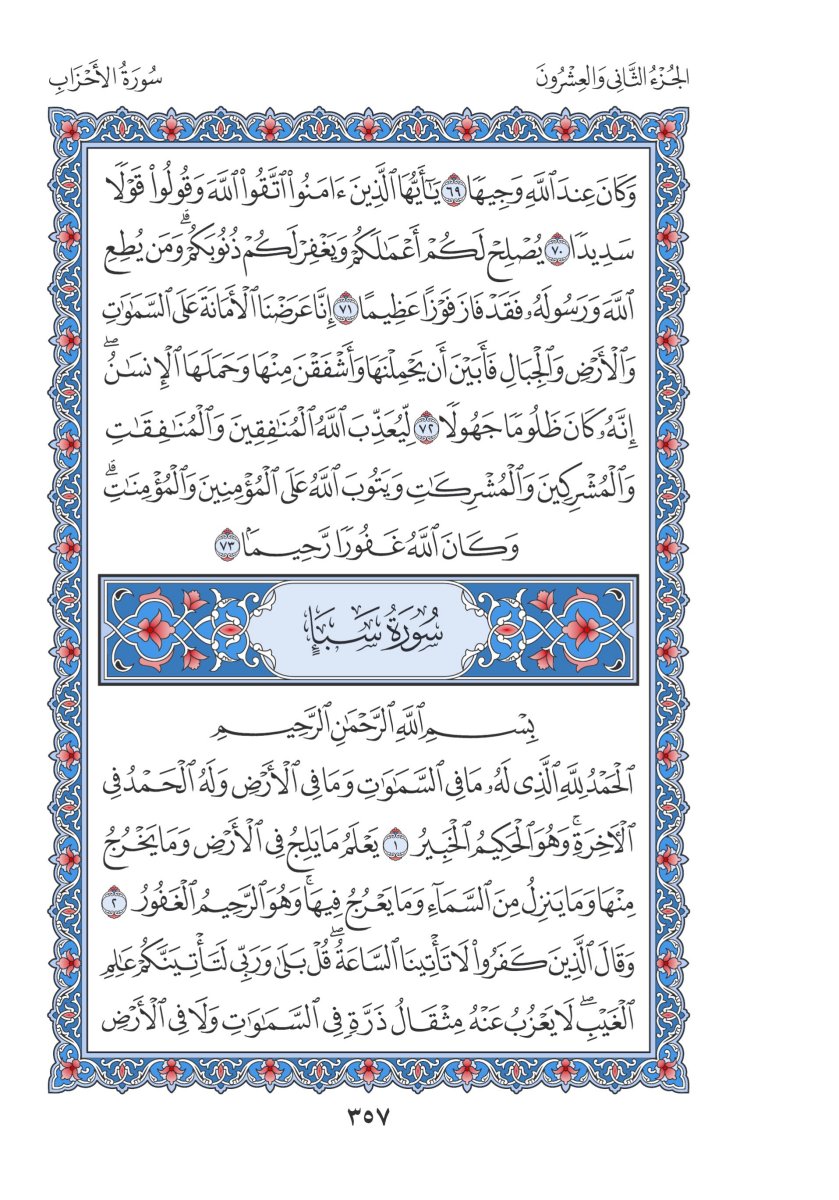 الجُزْءُ الثَّانِى وَالعِشْرُونَ
سُورَةُ الأَحْزَابِ
وَكَانَ عِندَ ٱللَّهِ وَجِيهًا ٦٩ يَٰٓأَيُّهَا ٱلَّذِينَ ءَامَنُواْ ٱتَّقُواْ ٱللَّهَ وَقُولُواْ قَوْلًا
سَدِيدًا ٧٠ يُصْلِحْ لَكُمْ أَعْمَٰلَكُمْ وَيَغْفِرْ لَكُمْ ذُنُوبَكُمْۗ وَمَن يُطِعِ
ٱللَّهَ وَرَسُولَهُۥ فَقَدْ فَازَ فَوْزًا عَظِيمًا ٧١ إِنَّا عَرَضْنَا ٱلْأَمَانَةَ عَلَى ٱلسَّمَٰوَٰتِ
وَٱلْأَرْضِ وَٱلْجِبَالِ فَأَبَيْنَ أَن يَحْمِلْنَهَا وَأَشْفَقْنَ مِنْهَا وَحَمَلَهَا ٱلْإِنسَٰنُۖ
إِنَّهُۥ كَانَ ظَلُومًا جَهُولًا ٧٢ لِّيُعَذِّبَ ٱللَّهُ ٱلْمُنَٰفِقِينَ وَٱلْمُنَٰفِقَٰتِ
وَٱلْمُشْرِكِينَ وَٱلْمُشْرِكَٰتِ وَيَتُوبَ ٱللَّهُ عَلَى ٱلْمُؤْمِنِينَ وَٱلْمُؤْمِنَٰتِۗ
وَكَانَ ٱللَّهُ غَفُورًا رَّحِيمًۢا ٧٣
سُورَةُ سَبَإٍ
بِسْمِ ٱللَّهِ ٱلرَّحْمَٰنِ ٱلرَّحِيمِ
ٱلْحَمْدُ لِلَّهِ ٱلَّذِى لَهُۥ مَا فِى ٱلسَّمَٰوَٰتِ وَمَا فِى ٱلْأَرْضِ وَلَهُ ٱلْحَمْدُ فِى
ٱلْأٓخِرَةِۚ وَهُوَ ٱلْحَكِيمُ ٱلْخَبِيرُ ١ يَعْلَمُ مَا يَلِجُ فِى ٱلْأَرْضِ وَمَا يَخْرُجُ
مِنْهَا وَمَا يَنزِلُ مِنَ ٱلسَّمَآءِ وَمَا يَعْرُجُ فِيهَاۚ وَهُوَ ٱلرَّحِيمُ ٱلْغَفُورُ ٢
وَقَالَ ٱلَّذِينَ كَفَرُواْ لَا تَأْتِينَا ٱلسَّاعَةُۖ قُلْ بَلَىٰ وَرَبِّى لَتَأْتِيَنَّكُمْ عَٰلِمِ
ٱلْغَيْبِۖ لَا يَعْزُبُ عَنْهُ مِثْقَالُ ذَرَّةٍ فِى ٱلسَّمَٰوَٰتِ وَلَا فِى ٱلْأَرْضِ
٣٥٧